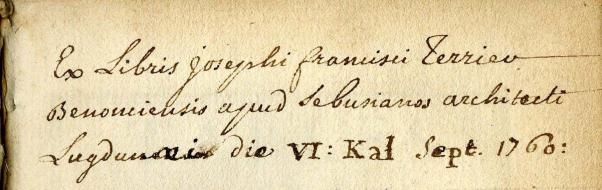 Ex Libris josephi francisci Terrier
Benonciensis apud Sebusianos architecti
Lugduni die VI: Kał Sept. 1760: